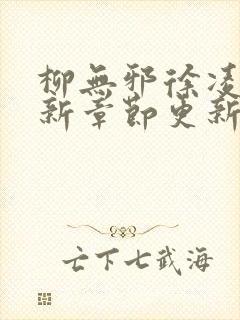 柳無邪徐凌
新章節更新
亡下七武海